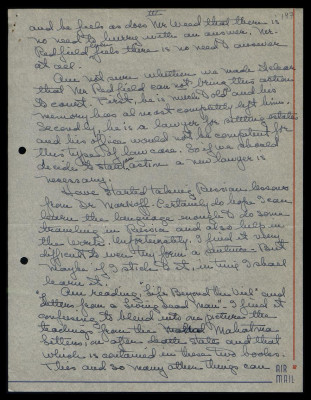 and he feels as does Mr. Weed that there is
no need to hurry with an answer. Mr.
Redfield feels there is no need to answer
at all.
Am not sure whether we made it clear
that Mr. Redfield can not bring this action
to court. First, he is much old and his
memory has almost completely left him.
Secondly, he is a lawyer for settling estates
and his office would not be competent for
this type of law case. So if we should
decide to start action a new lawyer is
necessary.
Have started taking Russian lessons
from Dr. Certainly do hope I can
learn the language enough to do some
traveling in Russia and also help in
the work. Unfortunately, I find it very
difficult to even try form a sentence. But
maybe if I stick to it, in time I shall
learn it.
Am reading "Life Beyond the Veil" and
"Letters from a Living Dead Man". I find it
confusing to blend into one picture the
teachings from the Mahatma
Letters, on after death states and that
which is contained in these two books.
This and so many other things can
AIR
MAIL